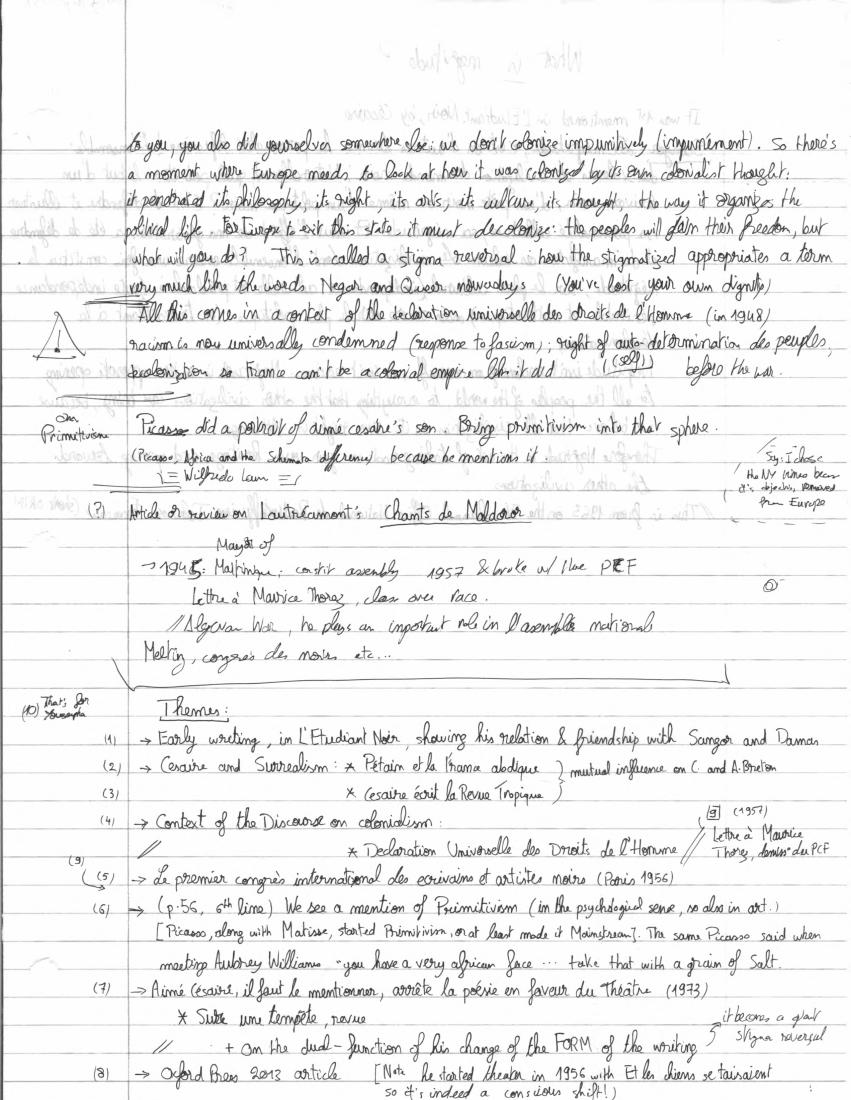 to you, you also did yourselves somewhere else: we don't colonize impunitively (impunément). So there's
a moment where Europe needs to look at how it was colonized by its own colonialist thought:
it penetrated its philosophy, its right its arts, its culture, its thought the way it organizes the
political life. For Europe to exit this state, it must decolonize: the peoples will claim their freedom, but
what will you do? This is called a stigma reversal is how the stigmatized appropriates a term
very much like the words Negar and Queer nowadays (You've lost your own dignity)
All this comes in a context of the declaration universelle des droits de l'Homme (in 1948)
racism is now universally condemned (response to fascism); right of auto-determination des peuples,
(self)
decolonization so France can't be a colonial empire like it did before the war.
On Primitivism
Picasso did a portrait of aimé cesaire's son. Bring primitivism into that sphere.
(Picasso, Africa and the Schemata difference) because he mentions it
Wilfredo Lam
Say: I chose
the NY times
it's objective, removed
from Europe
(?) Article or review on Lautréamont's Chants de Maldoror
Mayor of
→ 1945: Martinique; constit assembly 1957 & broke w/ the PCF
Lettre à Maurice Thorez, class over race.
// Algerian War, he plays an important role in l'assemblée national
Melting, congrès des noirs etc...
(10) That's for
Themes:
(1) → Early writing, in L'Etudiant Noir, showing his relation & friendship with Sangor and Damas
(2) → Cesaire and Surrealism: * Pétain et la France } mutual influence on C. and A. Breton
(3) * Cesaire écrit la Revue Tropique
(4) → Context of the Discourse on colonialism:
// * Declaration Universelle des Droits de l'Homme //
[9] (1957)
Lettre à Maurice
Thorez, demiss° du PCF
(9)
(5) → Le premier congrès international des ecrivains et artistes noirs (Paris 1956)
(6) → (p.56, 6th line) We see a mention of Primitivism (in the psychological sense, so also in art.)
[Picasso, along with Matisse, started Primitivism, or at least made it Mainstream]. The same Picasso said when
meeting Aubrey Williams "you have a very african face ... take that with a grain of Salt.
(7) → Aimé Césaire, il faut le mentionner, arrête la poésie en faveur du Théâtre (1973)
* Sur une tempête, revue
// + On the dual-function of his change of the FORM of the writing
it becomes a giant
stigma reversal
(8) → Oxford Press 2013 article [Note he started theater in 1956 with Et les chiens se taisaient
so it's indeed a conscious shift!)